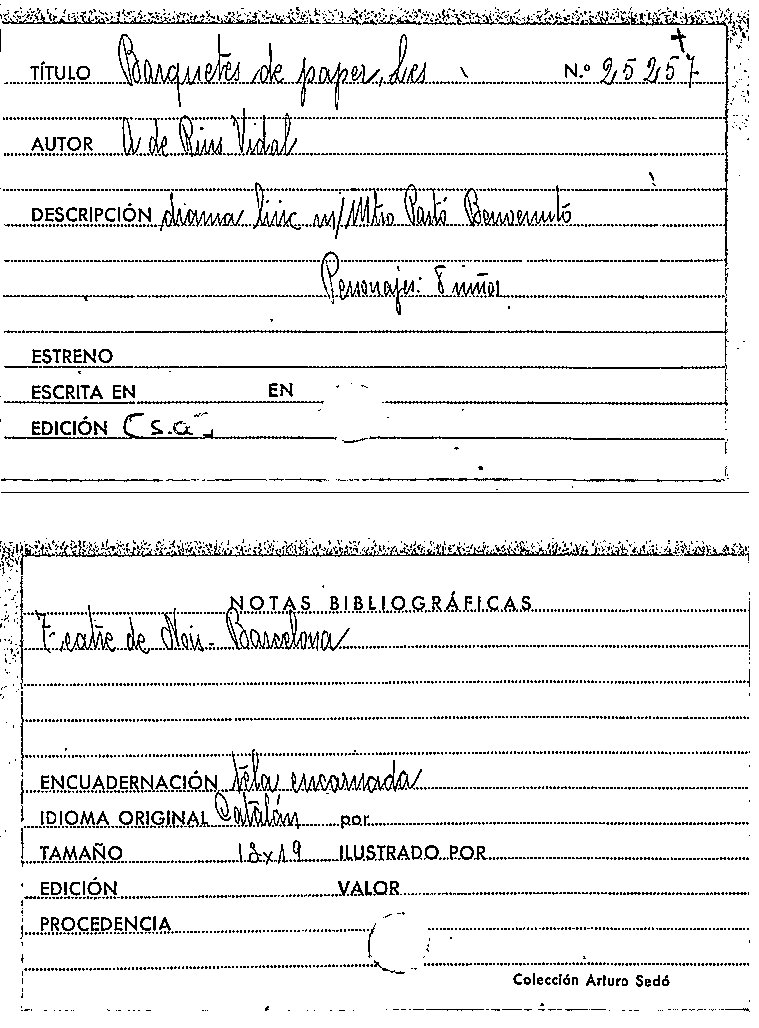 TÍTULO Barquetes de paper, Les N.º 25257
AUTOR A de Rius Vidal
DESCRIPCIÓN drama líric m/ Mtro Partó Benvenuto
Personajes: 8 niños
ESTRENO
ESCRITA EN EN
EDICIÓN [s.a.]
NOTAS BIBLIOGRÁFICAS
Teatre de Nois - Barcelona
ENCUADERNACIÓN tela encarnada
IDIOMA ORIGINAL Catalán por
TAMAÑO 12x19 ILUSTRADO POR
EDICIÓN VALOR
PROCEDENCIA
Colección Arturo Sedó